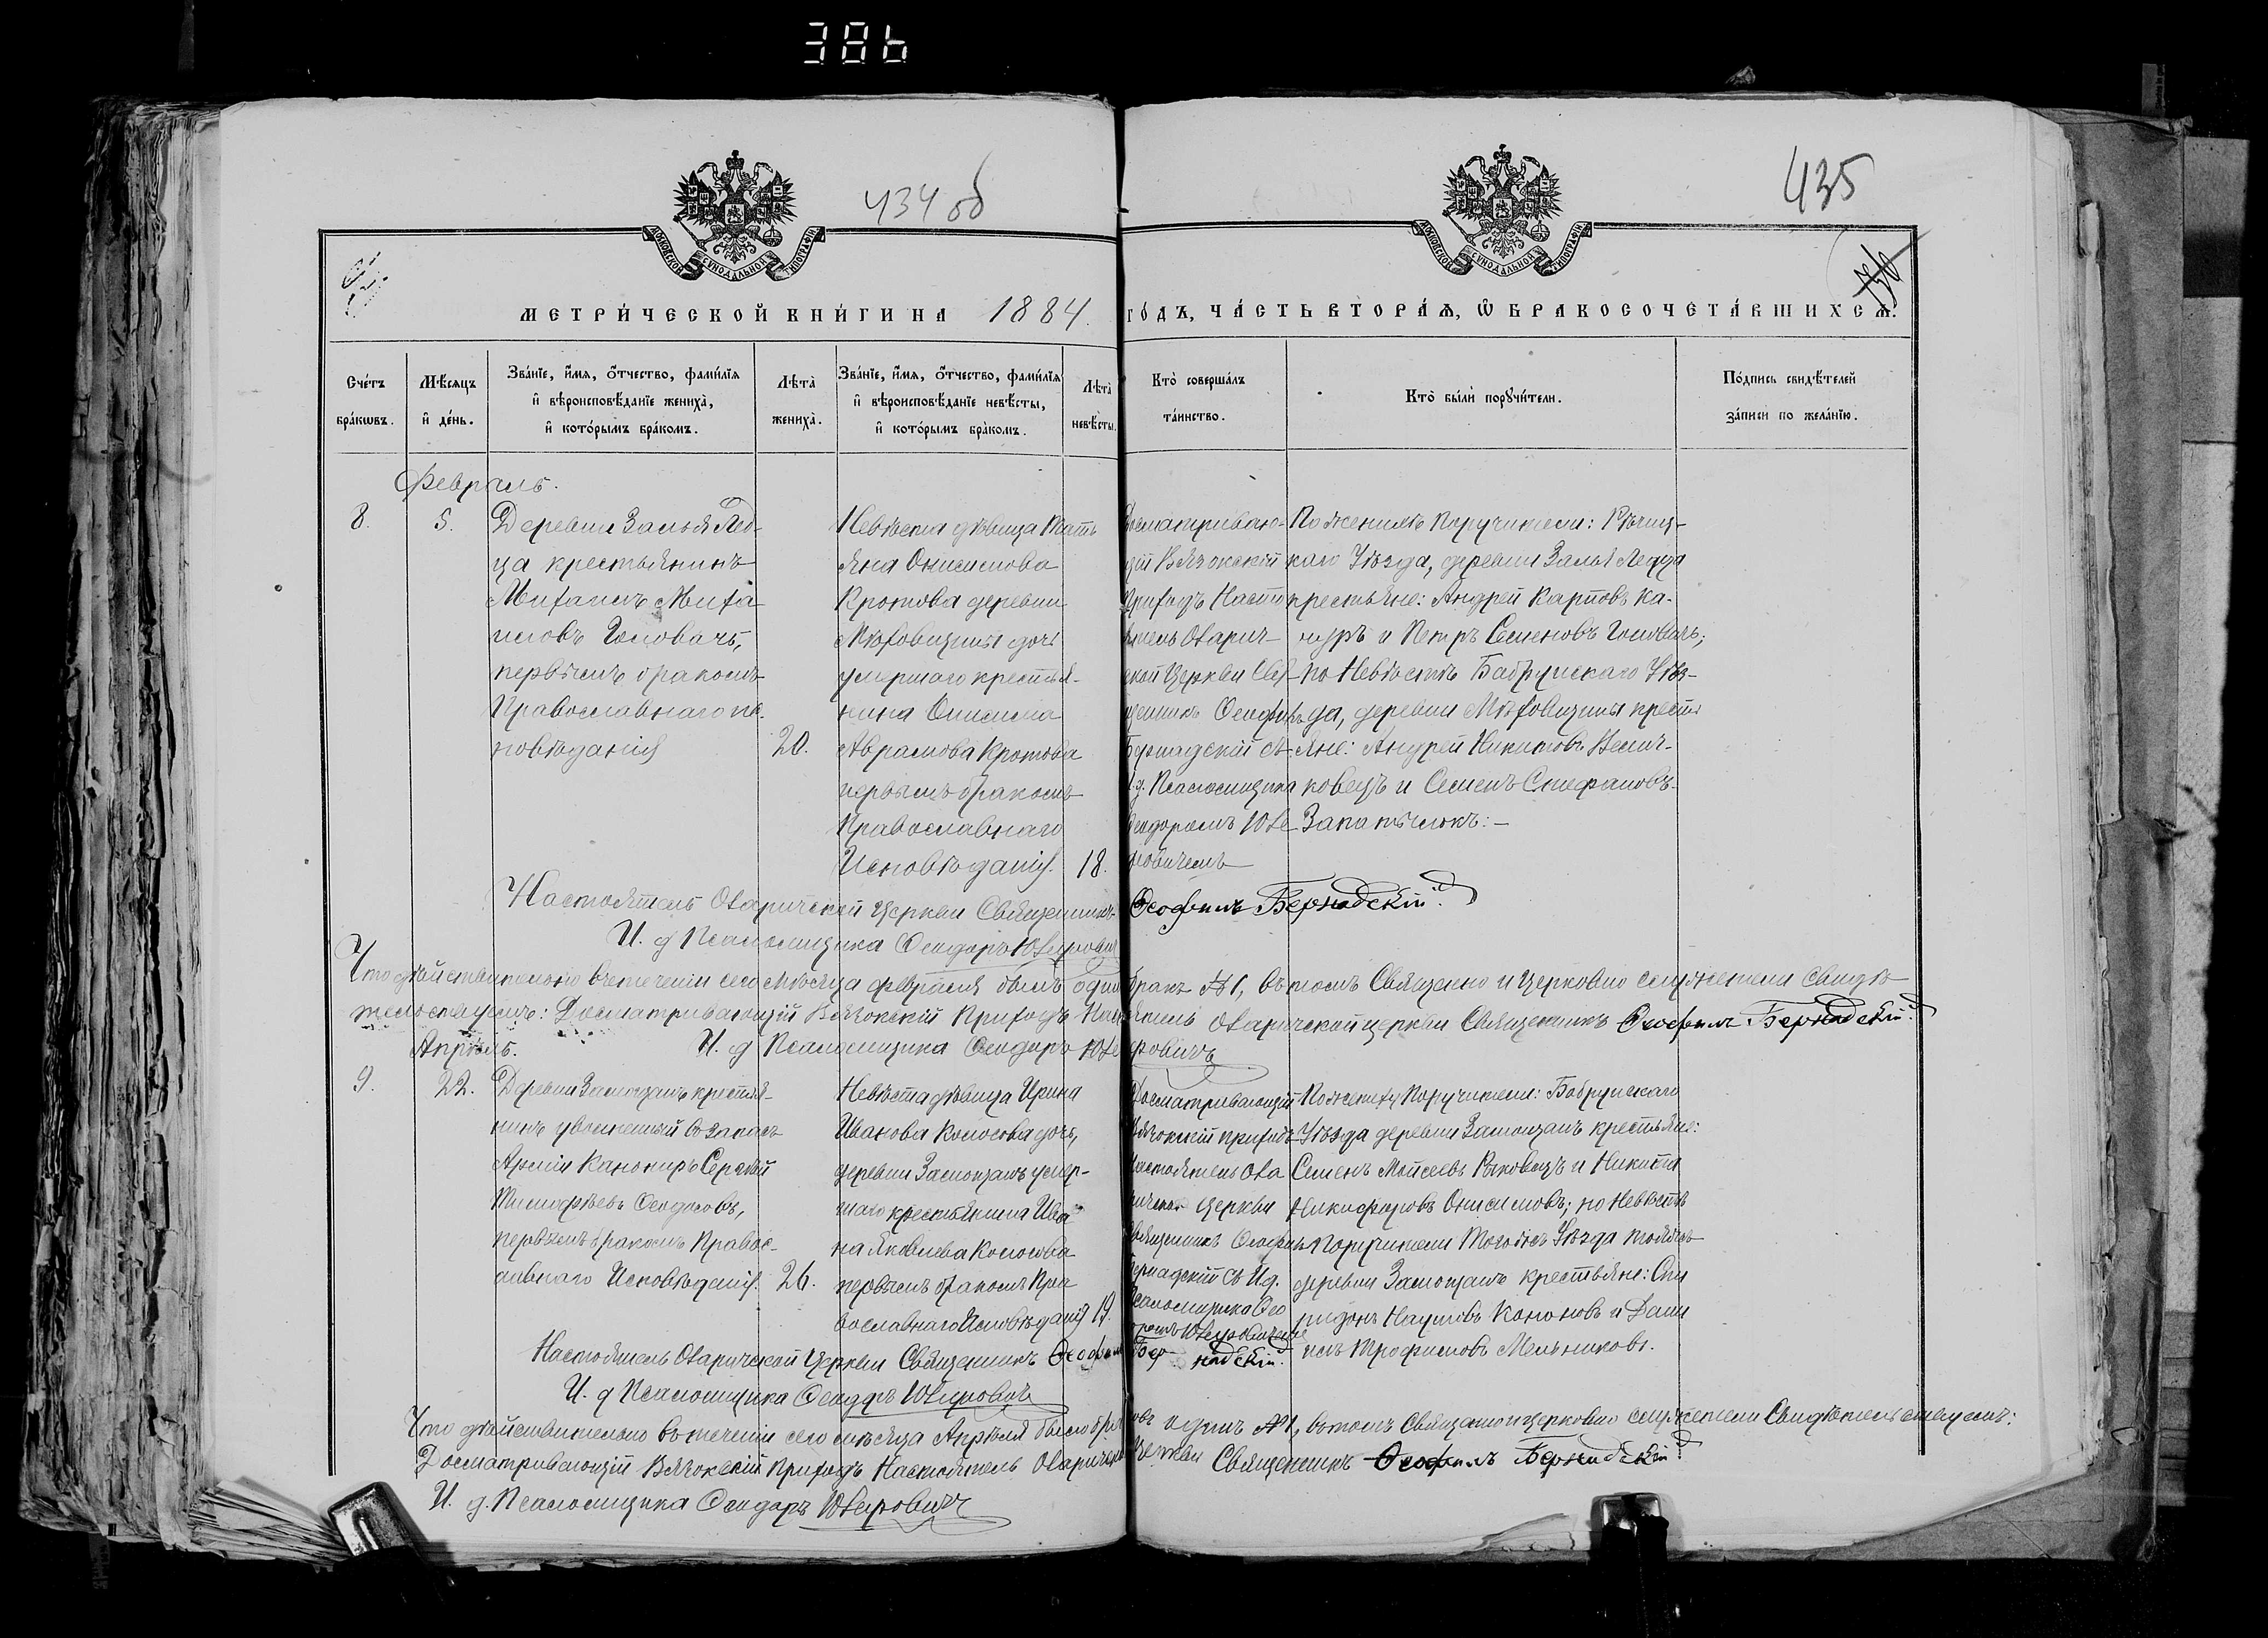 386
434 об
435
МОСКОВСКОЙ СУНОДАЛЬНОЙ ТИПОГРАФІИ
МОСКОВСКОЙ СУНОДАЛЬНОЙ ТИПОГРАФІИ
МЕТРИ́ЧЕСКОЙ КНИ́ГИ НА 1884. ГО́ДЪ, ЧА́СТЬ ВТОРА́Ѧ, Ѡ БРАКОСОЧЕТА́ВШИХСѦ.
Сче́тъ бра́кѡвъ.
Мѣ́сяцъ и҆ де́нь.
Зва́нїе, и҆́мя, ѻ҆́тчество, фами́лїя и҆ вѣроисповѣ́данїе жениха̀, и҆ кото́рымъ бра́комъ.
Лѣта̀ жениха̀.
Зва́нїе, и҆́мя, ѻ҆́тчество, фами́лїя и҆ вѣроисповѣ́данїе невѣ́сты, и҆ кото́рымъ бра́комъ.
Лѣта̀ невѣ́сты.
Кто̀ соверша́лъ та́инство.
Кто̀ бы́ли порꙋчи́тели.
По́дпись свидѣ́телей за́писи по жела́нїю.
Февраль.
8.
5.
Деревни Залья Лед-
ца крестьянинъ
Михаилъ Миха-
иловъ Головачъ,
первымъ бракомъ
Православнаго ис-
повѣданія
20.
Невѣста дѣвица Тать
яна Онисимова
Кротова деревни
Мѣховщины дочь
умершаго крестья-
нина Онисима
Аврамова Кротова
первымъ бракомъ
Православнаго
Исповѣданія.
18.
Досматриваю-
щій Вязокскій
Приходъ Насто
ятель Осарич
ской Церкви Свя-
щенникъ Ѳеофилъ
Бернадскій съ
И.д. Псаломщика
Ѳеодоромъ Юзе
фовичемъ
По женихѣ Поручители: Рѣчиц-
каго Уѣзда, деревни Залья Ледца
крестьяне: Андрей Карповъ Ка-
и Петръ Семеновъ Головачъ;
по Невѣстѣ Бобруйскаго Уѣз-
да, деревни Мѣховщины кресть
яне: Андрей Никитовъ
и Семенъ Стефановъ
Настоятель Осаричской Церкви Священникъ Ѳеофилъ Бернадскій.
И. д Псаломщика Ѳеодоръ Юзефовичъ
Что дѣйствительно въ теченіи сего мѣсяца февраля былъ одинъ бракъ №1, въ томъ Священно и Церковно служители свидѣ-
тельствуемъ: Досматривающій Вязокскій Приходъ Настоятель Осаричской церкви Священникъ Ѳеофилъ Бернадскій.
И. д Псаломщика Ѳеодоръ Юзефовичъ
Апрѣль.
9.
22.
Деревни Замощанъ крестья-
нинъ уволенный въ запасъ
Арміи Канониръ Сергѣй
Тимофѣевъ Ѳедосовъ,
первымъ бракомъ Правос-
лавнаго Исповѣданія.
26.
Невѣста дѣвица Ирина
Иванова Колосова дочь,
деревни Замощанъ умер-
шаго крестьянина Ива
на Яковлева Колосова
первымъ бракомъ Пра
вославнаго Исповѣданія
19.
Досматривающій
Вязокскій приходъ
Настоятель Оса
ричской Церкви
Священникъ Ѳеофилъ
Бернадскій съ И.д.
Псаломщика Ѳео
доромъ Юзефовичемъ
По жениху Поручители: Бобруйскаго
Уѣзда деревни Замощанъ крестьяне:
Семенъ Моисеевъ и Никита
Никифоровъ Онисимовъ; по Невѣстѣ
Поручители Тогожъ Уѣзда тояжъ
деревни Замощанъ крестьяне: Спи
ридонъ Наумовъ Кононовъ и Дани
илъ Трофимовъ Мельниковъ.
Настоятель Осаричской Церкви Священникъ Ѳеофилъ Бернадскій.
И. д Псаломщика Ѳеодоръ Юзефовичъ
Что дѣйствительно въ теченіи сего мѣсяца Апрѣля было браковъ одинъ №1, въ томъ Священно и церковно служители Свидѣтельствуемъ:
Досматривающій Вязокскій Приходъ Настоятель Осаричской Церкви Священникъ Ѳеофилъ Бернадскій.
И. д. Псаломщика Ѳеодоръ Юзефовичъ